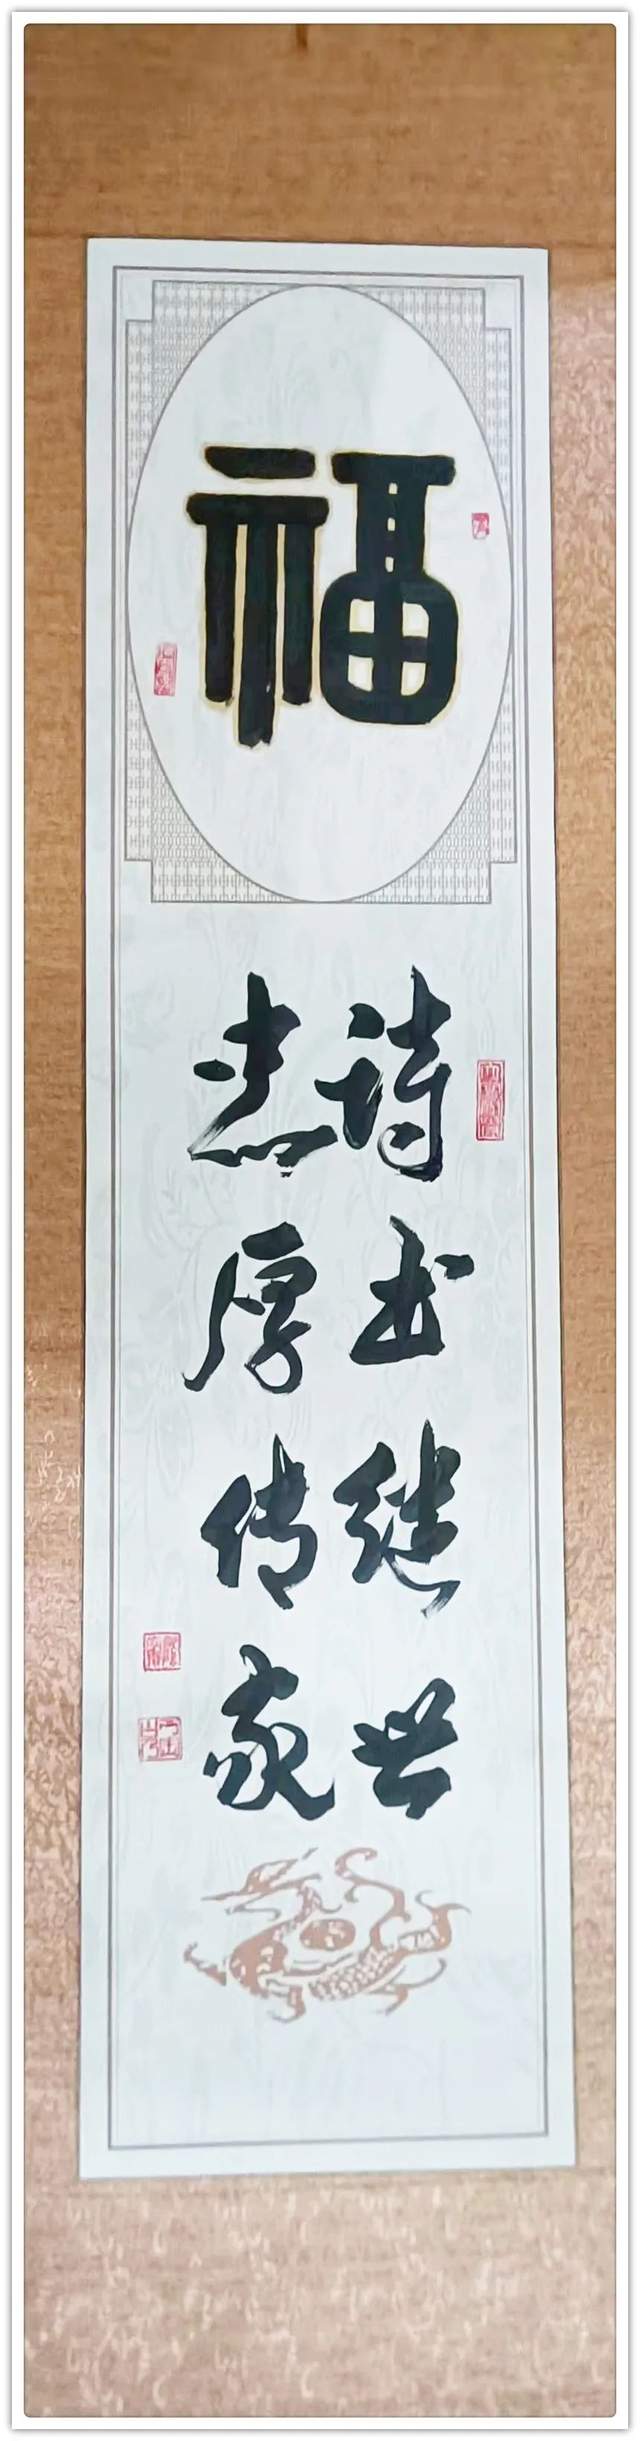 福
诗书继世
忠厚传家